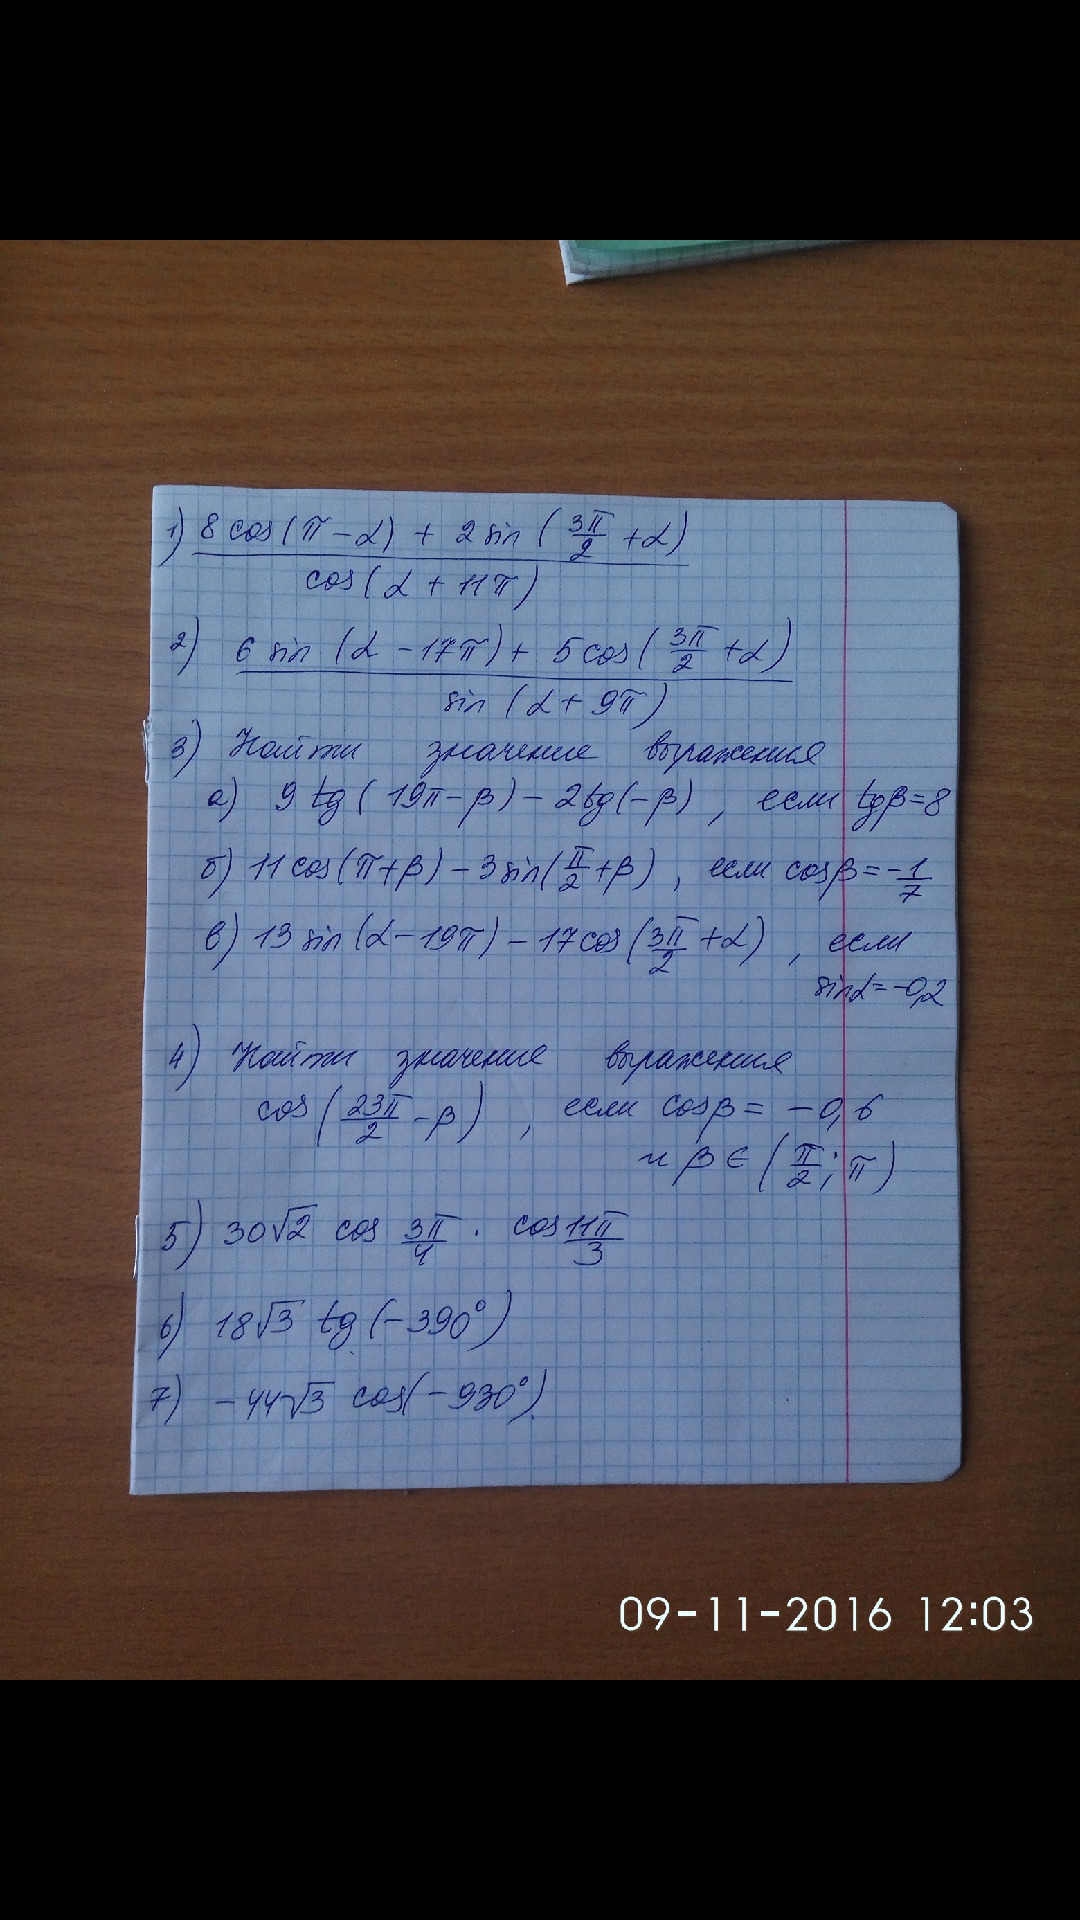 1) 8 cos(π - α) + 2 sin(3π/2 + α)
cos(α + 11π)
2) 6 sin(α - 17π) + 5 cos(3π/2 + α)
sin(α + 9π)
3) Найти значение выражения
а) 9 tg(19π - β) - 2tg(-β), если tgβ = 8
б) 11 cos(π + β) - 3 sin(π/2 + β), если cosβ = -1/7
в) 13 sin(α - 19π) - 17 cos(3π/2 + α), если
sinα = -0,2
4) Найти значения выражения
cos(23π/2 - β), если cosβ = -0,6
и β ∈ (π/2; π)
5) 30√2 cos 3π/4 · cos 11π/3
6) 18√3 tg(-390°)
7) -44√3 cos(-930°)
09-11-2016 12:03